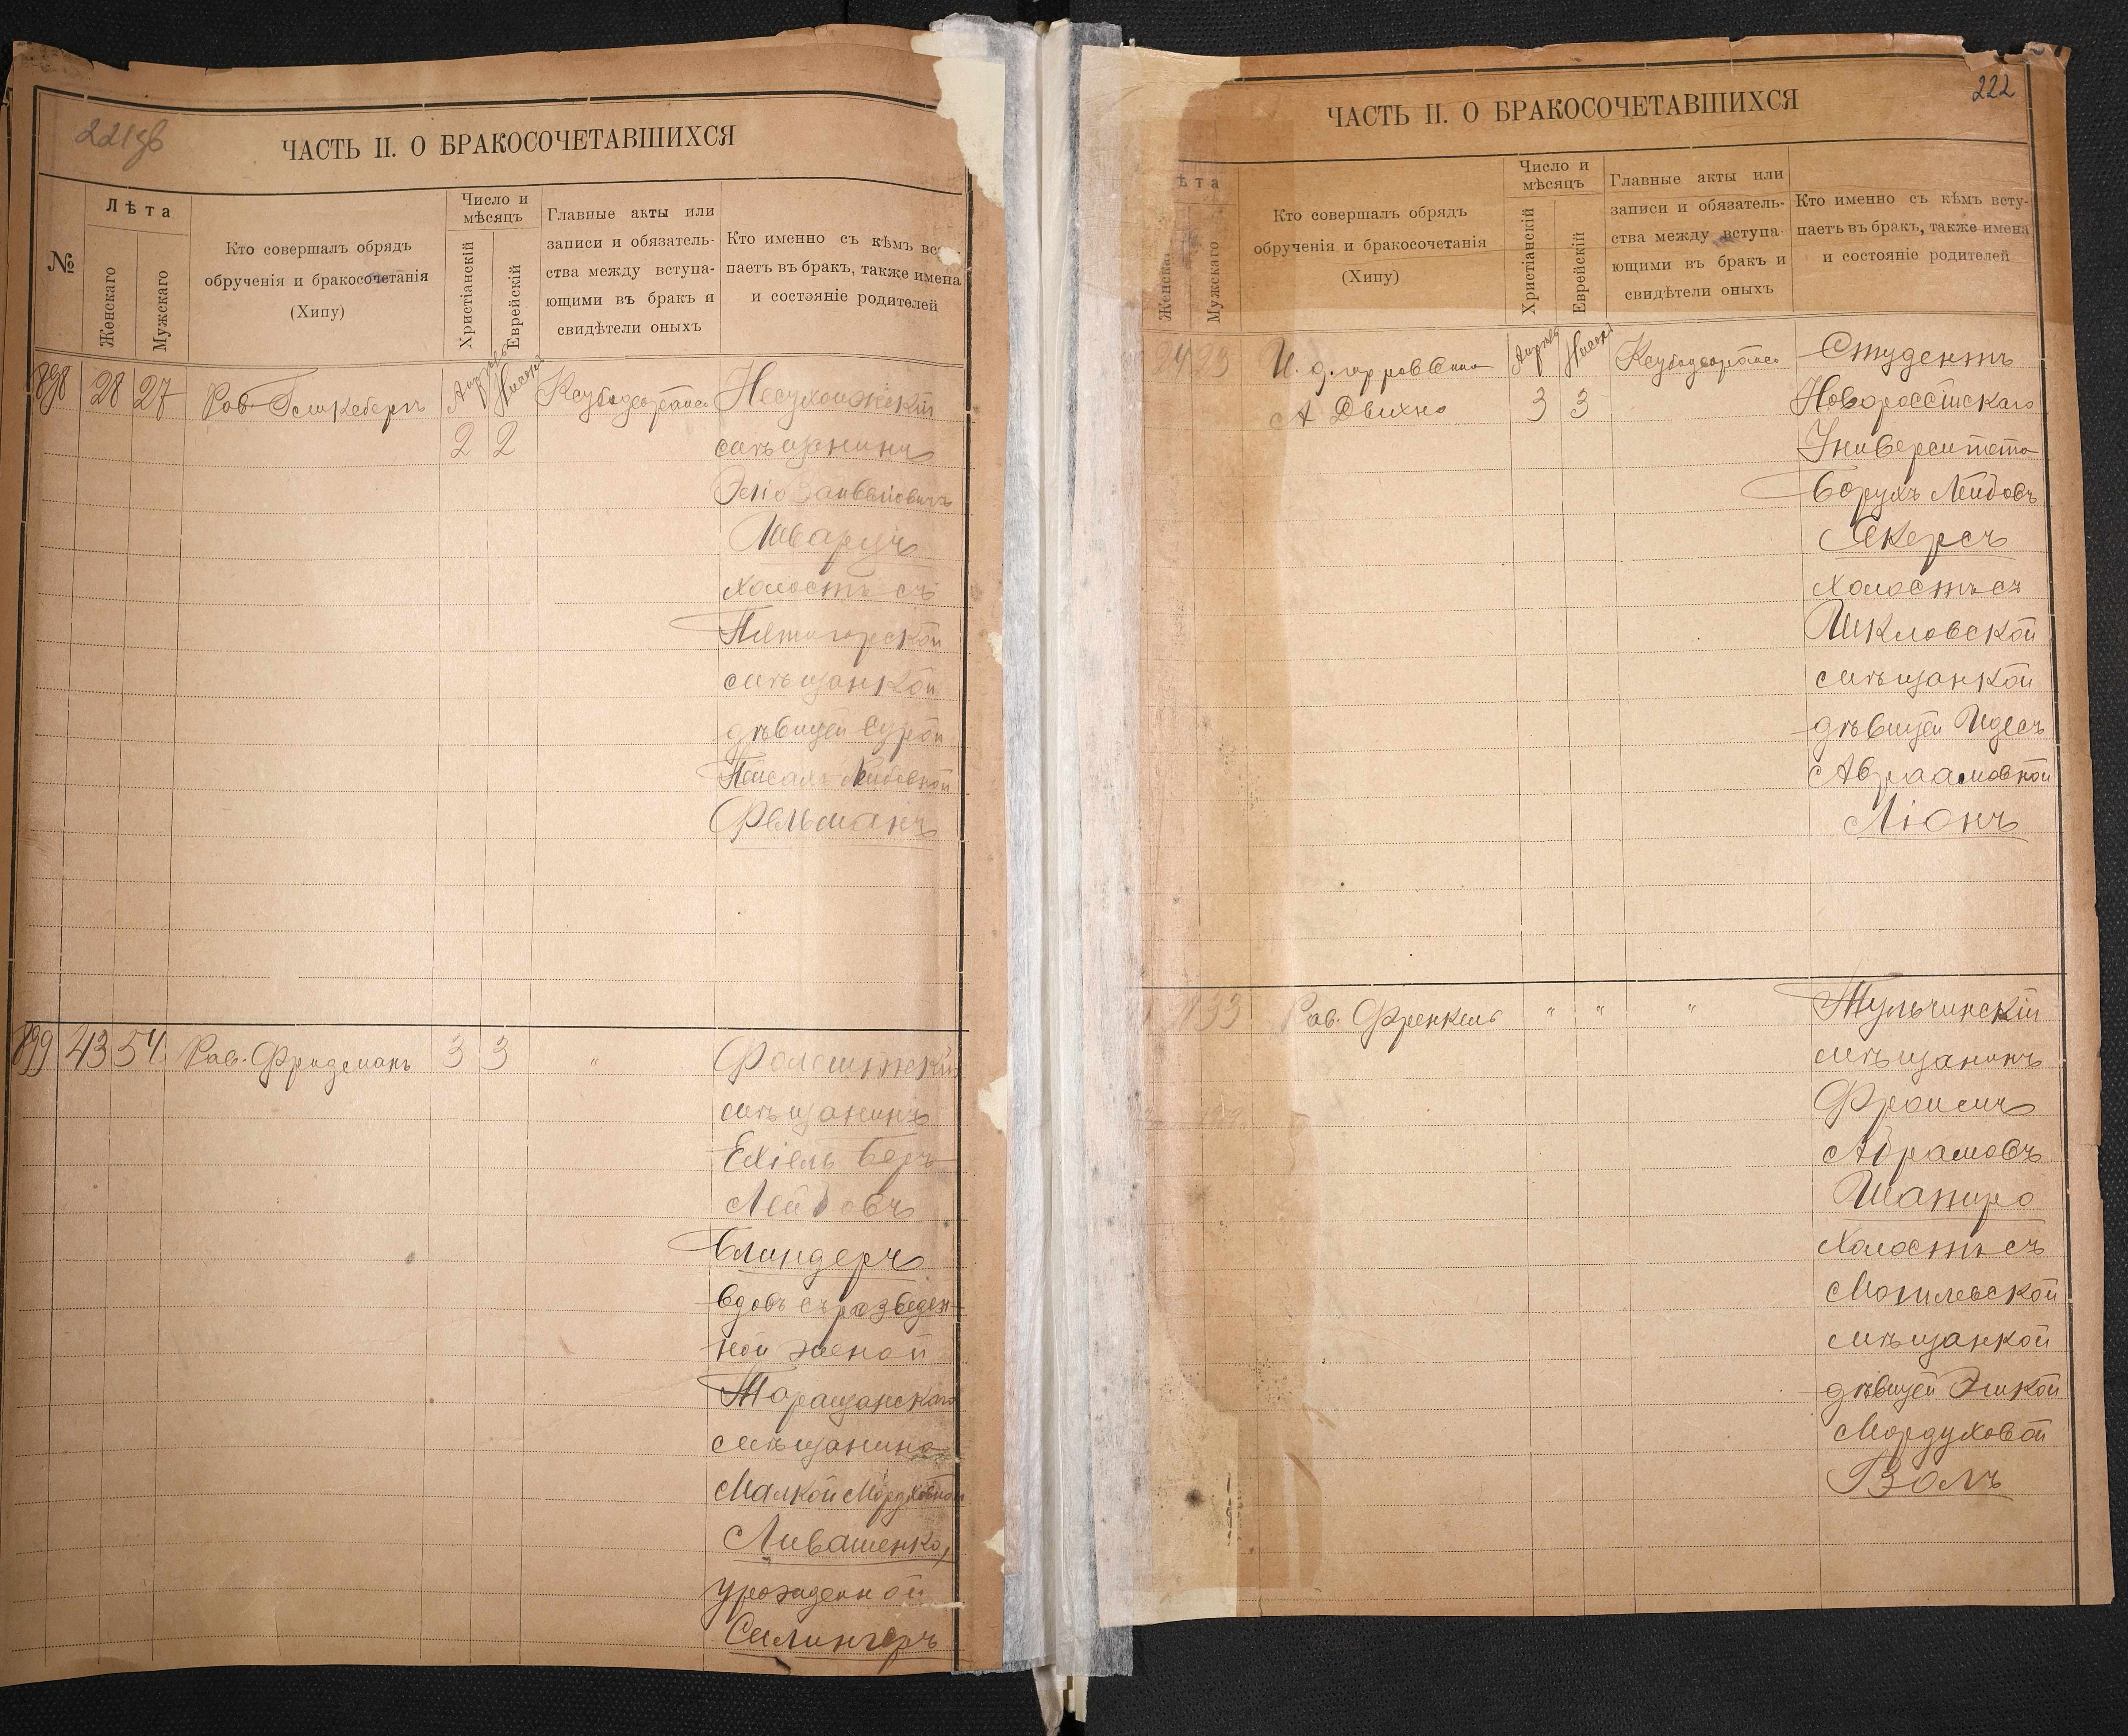 221 об
ЧАСТЬ II. О БРАКОСОЧЕТАВШИХСЯ
№
Лѣта
Женскаго
Мужскаго
Кто совершалъ обрядъ
обрученія и бракосочетанія
(Хипу)
Число и
мѣсяцъ
Христіанскій
Еврейскій
Главные акты или
записи и обязатель-
ства между вступа-
ющими въ бракъ и
свидѣтели оныхъ
Кто именно съ кѣмъ всту-
паетъ въ бракъ, также имена
и состояніе родителей
898 28 27
Апрель Нисонъ
2 2
мѣщанинъ
Шварцъ
холостъ съ
Пятигорской
мѣщанкой
дѣвицей Сурой
Фельманъ
899 43 54 Рав. Фридманъ 3 3 "
мѣщанинъ
Ехіель Беръ
Лейбовъ
Блиндеръ
вдовъ съ разведен-
ной женой
Таращанскаго
мѣщанина
Малкой Мордковной
Ливашенко,
урожденной
222
ЧАСТЬ II. О БРАКОСОЧЕТАВШИХСЯ
ѣта
Женска
Мужскаго
Кто совершалъ обрядъ
обрученія и бракосочетанія
(Хипу)
Число и
мѣсяцъ
Христіанскій
Еврейскій
Главные акты или
записи и обязатель-
ства между вступа-
ющими въ бракъ и
свидѣтели оныхъ
Кто именно съ кѣмъ всту-
паетъ въ бракъ, также имена
и состояніе родителей
24 23 И. д. гор. раввина Апрель Нисонъ Студентъ
3 3
Новороссійскаго
Университета
Борухъ Лейбовъ
Якерсъ
холостъ съ
Шкловской
мѣщанкой
дѣвицей Идесъ
Авраамовной
Ліонъ
33 Рав. Френкель " " " Тульчинскій
мѣщанинъ
Фроимъ
Абрамовъ
Шапиро
холостъ съ
Могилевской
мѣщанкой
дѣвицей
Мордуховой
Волъ